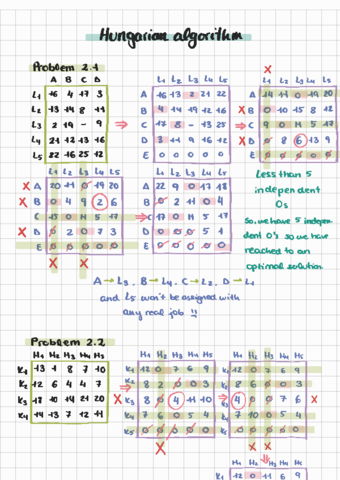 Hungarian algorithm
Problem 2.1
A B C D
L1 16 4 17 3
L2 13 14 8 11
L3 2 19 - 9
L4 21 12 13 16
L5 22 16 25 12
L1 L2 L3 L4 L5
A 16 13 2 21 22
B 4 14 19 12 16
C 17 8 - 13 25
D 3 11 9 16 12
E 0 0 0 0 0
L1 L2 L3 L4 L5
A 14 11 0 19 20
B 0 10 15 8 12
C 9 0 M 5 17
D 0 8 6 13 9
E 0 0 0 0 0
L1 L2 L3 L4 L5
A 20 11 0 19 20
B 0 4 9 2 6
C 15 0 M 5 17
D 0 2 0 7 3
E 0 0 0 0
A 22 9 0 17 18
B 0 2 11 0 4
C 17 0 M 5 17
D 0 0 0 5 1
E 0 0 0 0
less than 5
independent
0s
So, we have 5 indepen-
dent 0's so we have
reached to an
optimal solution.
A → L3. B → L4. C → L2. D → L1
and L5 won't be assigned with
any real job !!
Problem 2.2
H1 H2 H3 H4 H5
K1 13 1 8 7 10
K2 12 6 4 4 7
K3 18 10 14 21 20
K4 14 13 7 12 11
H1 H2 H3 H4 H5
K1 12 0 7 6 9
K2 8 2 0 0 3
K3 8 0 4 11 10
K4 7 6 0 5 4
K5 0 0 0 0 0
H1 H2 H3 H4 H5
K1 12 0 7 6 9
8 6 0 0 3
4 0 0 7 6
7 10 0 5 4
H1 H2 H3 H4 H5
12 0 11 6 9